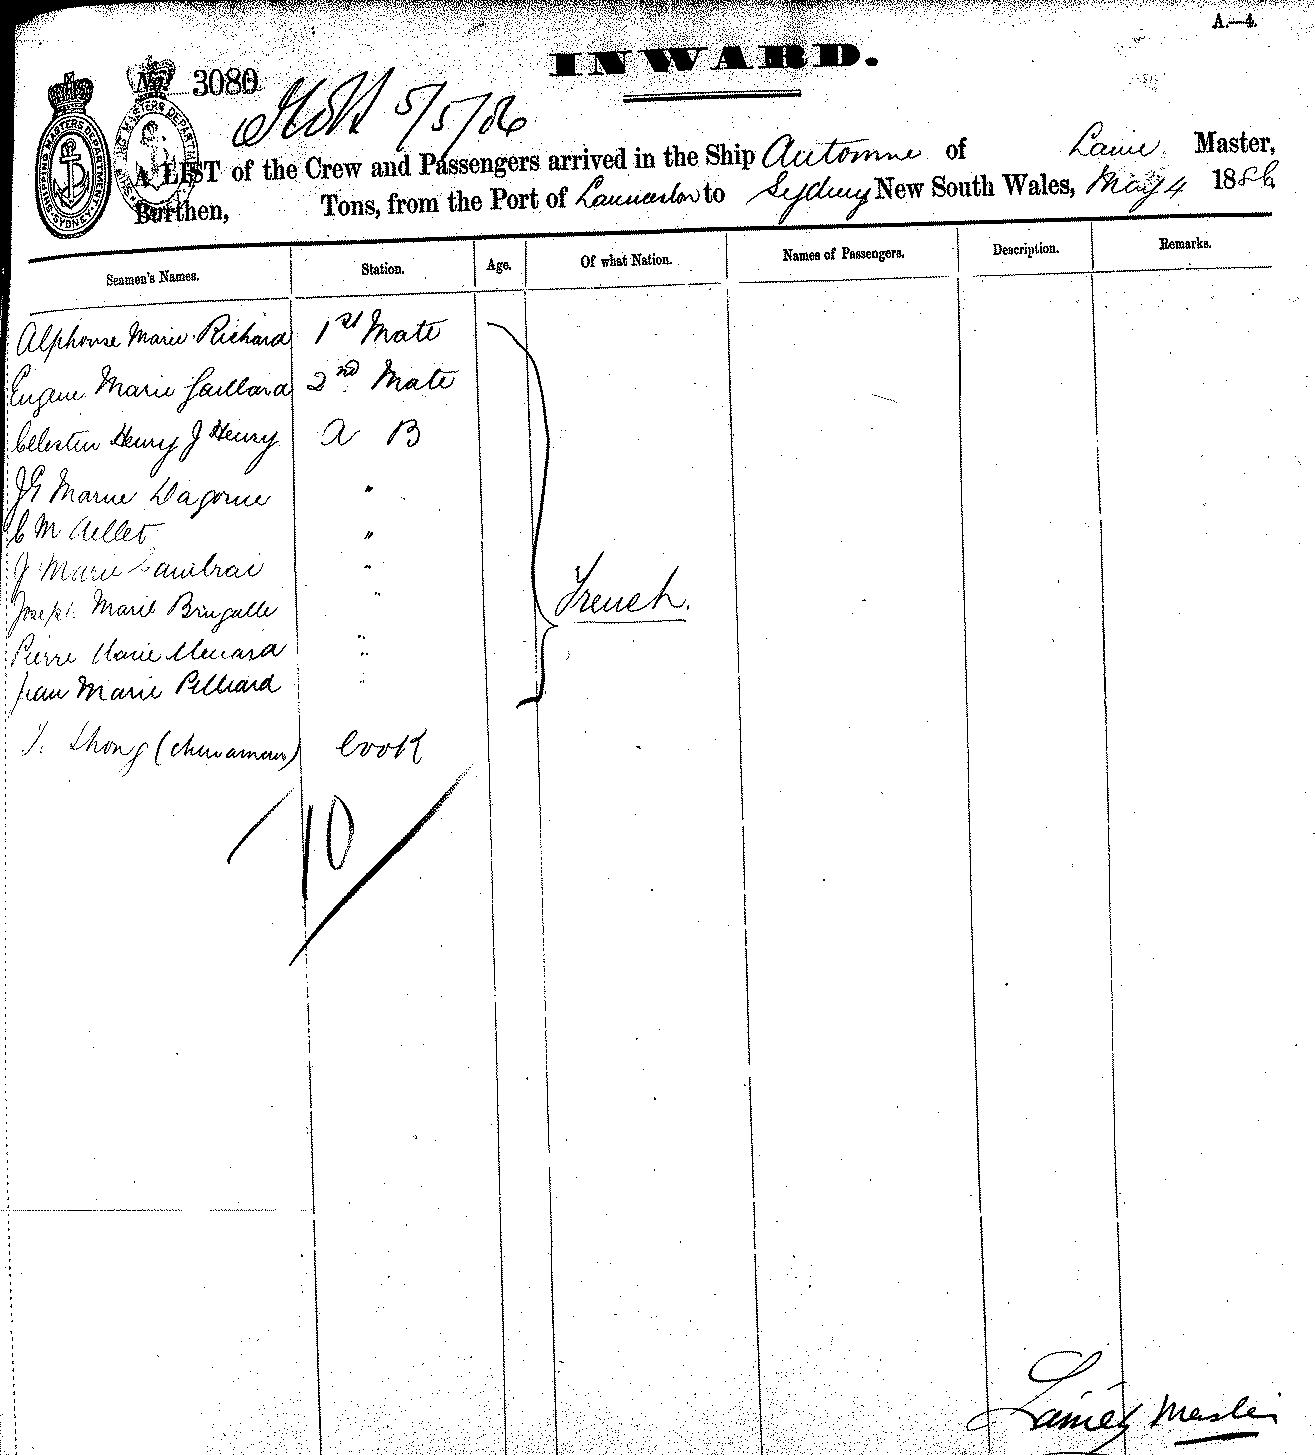 A.—4.
INWARD.
No. 3080
5/5/86
A LIST of the Crew and Passengers arrived in the Ship Automne of Master,
Burthen, Tons, from the Port of Launceston to Sydney New South Wales, May 4 1886
SHIPPING MASTERS DEPARTMENT SYDNEY
Seamen's Names. Station. Age. Of what Nation. Names of Passengers. Description. Remarks.
Alphonse Marie Richard 1st Mate
Eugene Marie Gaillard 2nd Mate
Celestin Henry J Henry A B
J G Marie Dagorne "
C M "
J Marie "
Joseph Marie Bringalle "
Pierre Marie Menard "
Jean Marie Pelliard "
French.
(Chinaman) Cook
10
Master